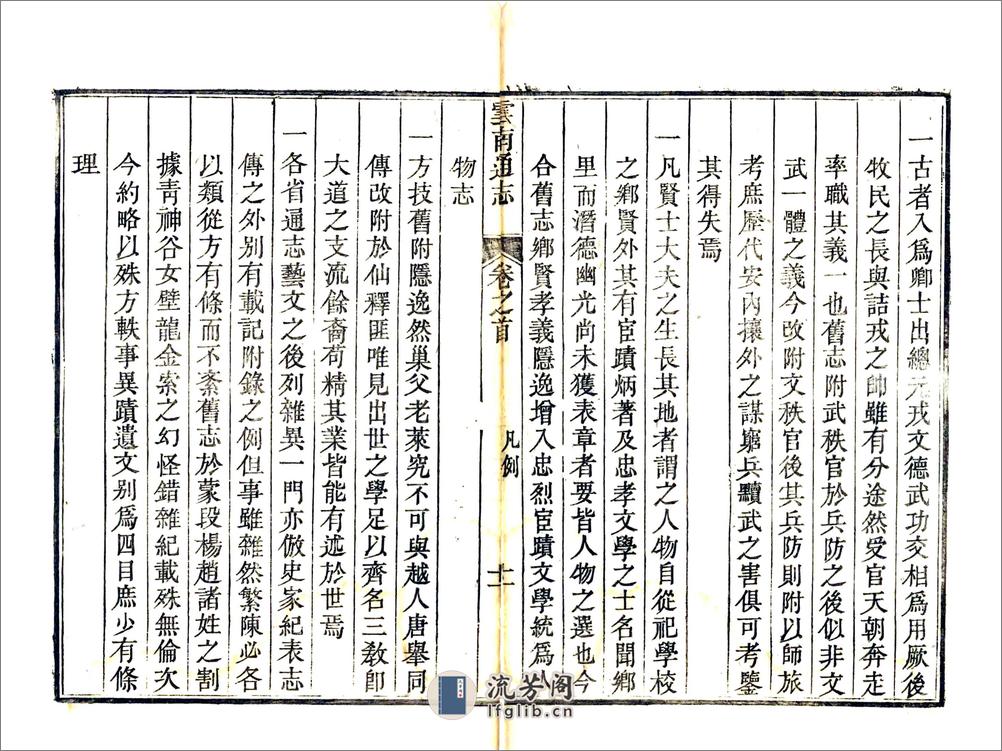 一古者入爲卿士出總元戎文德武功交相爲用厥後
牧民之長與詰戎之帥雖有分途然受官天朝奔走
率職其義一也舊志附武秩官於兵防之後似非文
武一體之義今改附文秩官後其兵防則附以師旅
考庶歷代安內攘外之謀窮兵黷武之害俱可考鑒
其得失焉
一凡賢士大夫之生長其地者謂之人物自從祀學校
之鄉賢外其有宦蹟炳著及忠孝文學之士名聞鄉
里而潛德幽光尚未獲表章者要皆人物之選也今
合舊志鄉賢孝義隱逸增入忠烈宦蹟文學統爲人
雲南通志
卷之首
凡例
十一
物志
一方技舊附隱逸然巢父老萊究不可與越人唐舉同
傳改附於仙釋匪唯見出世之學足以齊名三教卽
大道之支流餘裔苟精其業皆能有述於世焉
一各省通志藝文之後列雜異一門亦倣史家紀表志
傳之外別有載記附錄之例但事雖雜然繁陳必各
以類從方有條而不紊舊志於蒙段楊趙諸姓之割
據靑神谷女壁龍金索之幻怪錯雜紀載殊無倫次
今約略以殊方軼事異蹟遺文別爲四目庶少有條
理
流芳阁
lfglib.cn